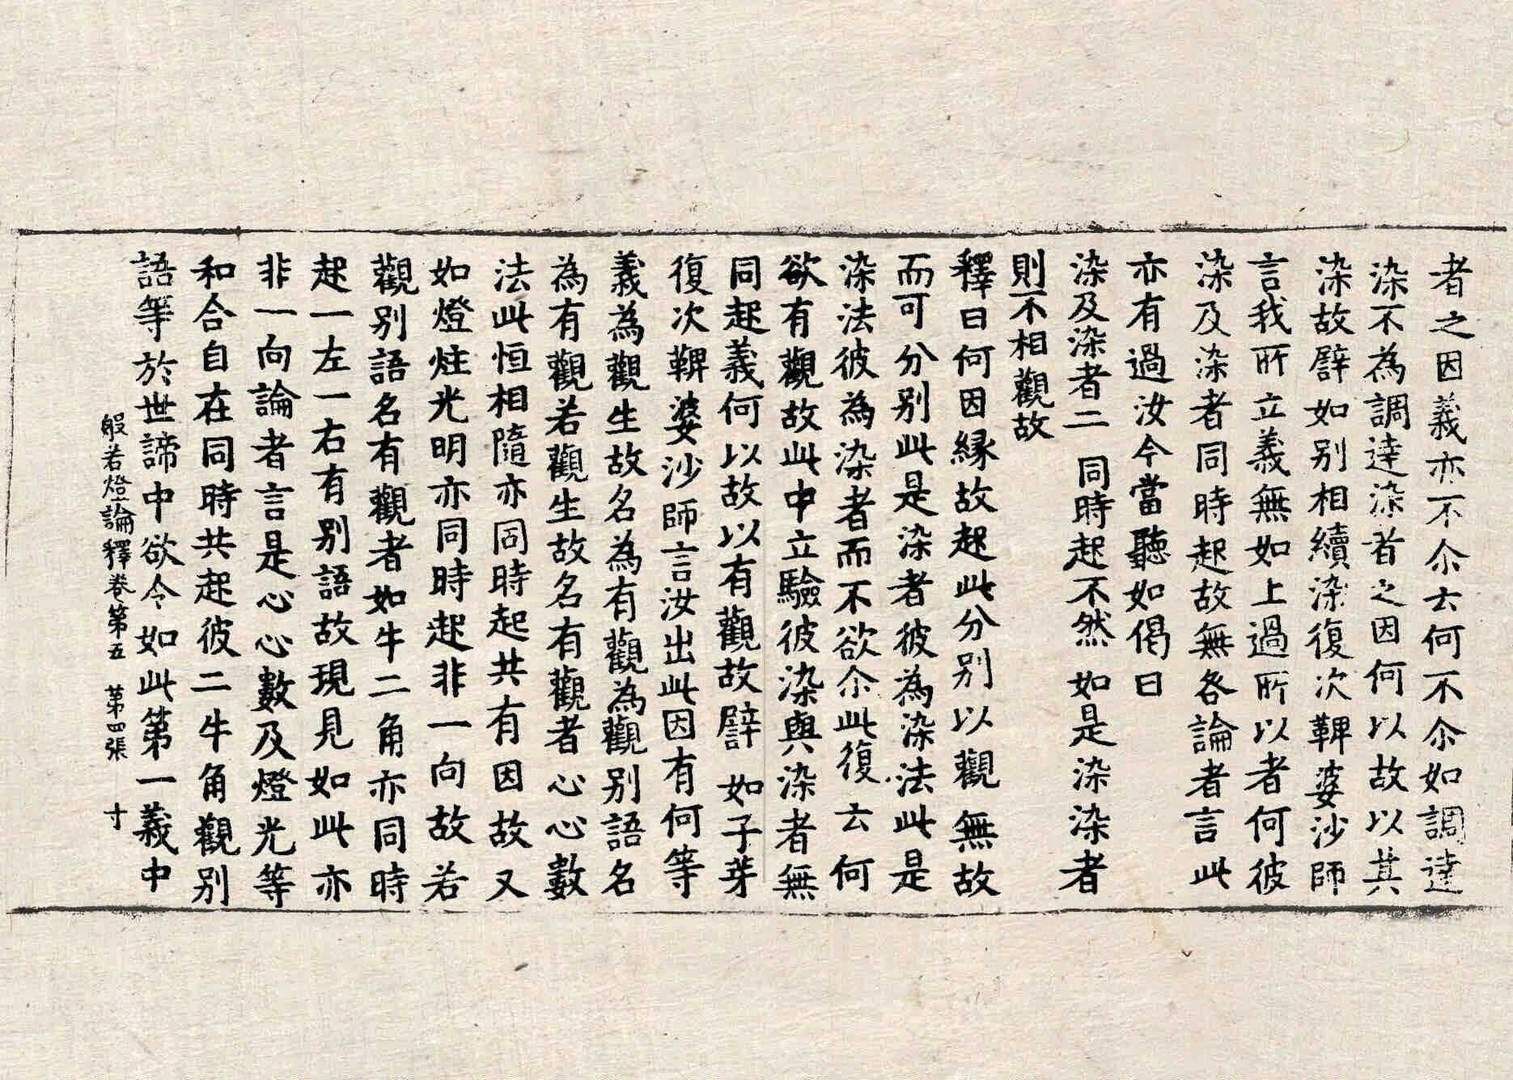 者之因義亦不尒云何不尒如調達
染不為調達染者之因何以故以其
染故譬如別相續染復次鞞婆沙師
言我所立義無如上過所以者何彼
染及染者同時起故無咎論者言此
亦有過汝今當聽如偈曰
染及染者二 同時起不然 如是染染者
則不相觀故
釋曰何因緣故起此分別以觀無故
而可分別此是染者彼為染法此是
染法彼為染者而不欲尒此復云何
欲有觀故此中立驗彼染與染者無
同起義何以故以有觀故譬如子芽
復次鞞婆沙師言汝出此因有何等
義為觀生故名為有觀為觀別語名
為有觀若觀生故名有觀者心心數
法此恒相隨亦同時起共有因故又
如燈炷光明亦同時起非一向故若
觀別語名有觀者如牛二角亦同時
起一左一右有別語故現見如此亦
非一向論者言是心心數及燈光等
和合自在同時共起彼二牛角觀別
語等於世諦中欲令如此第一義中
般若燈論釋卷第五 第四張 十